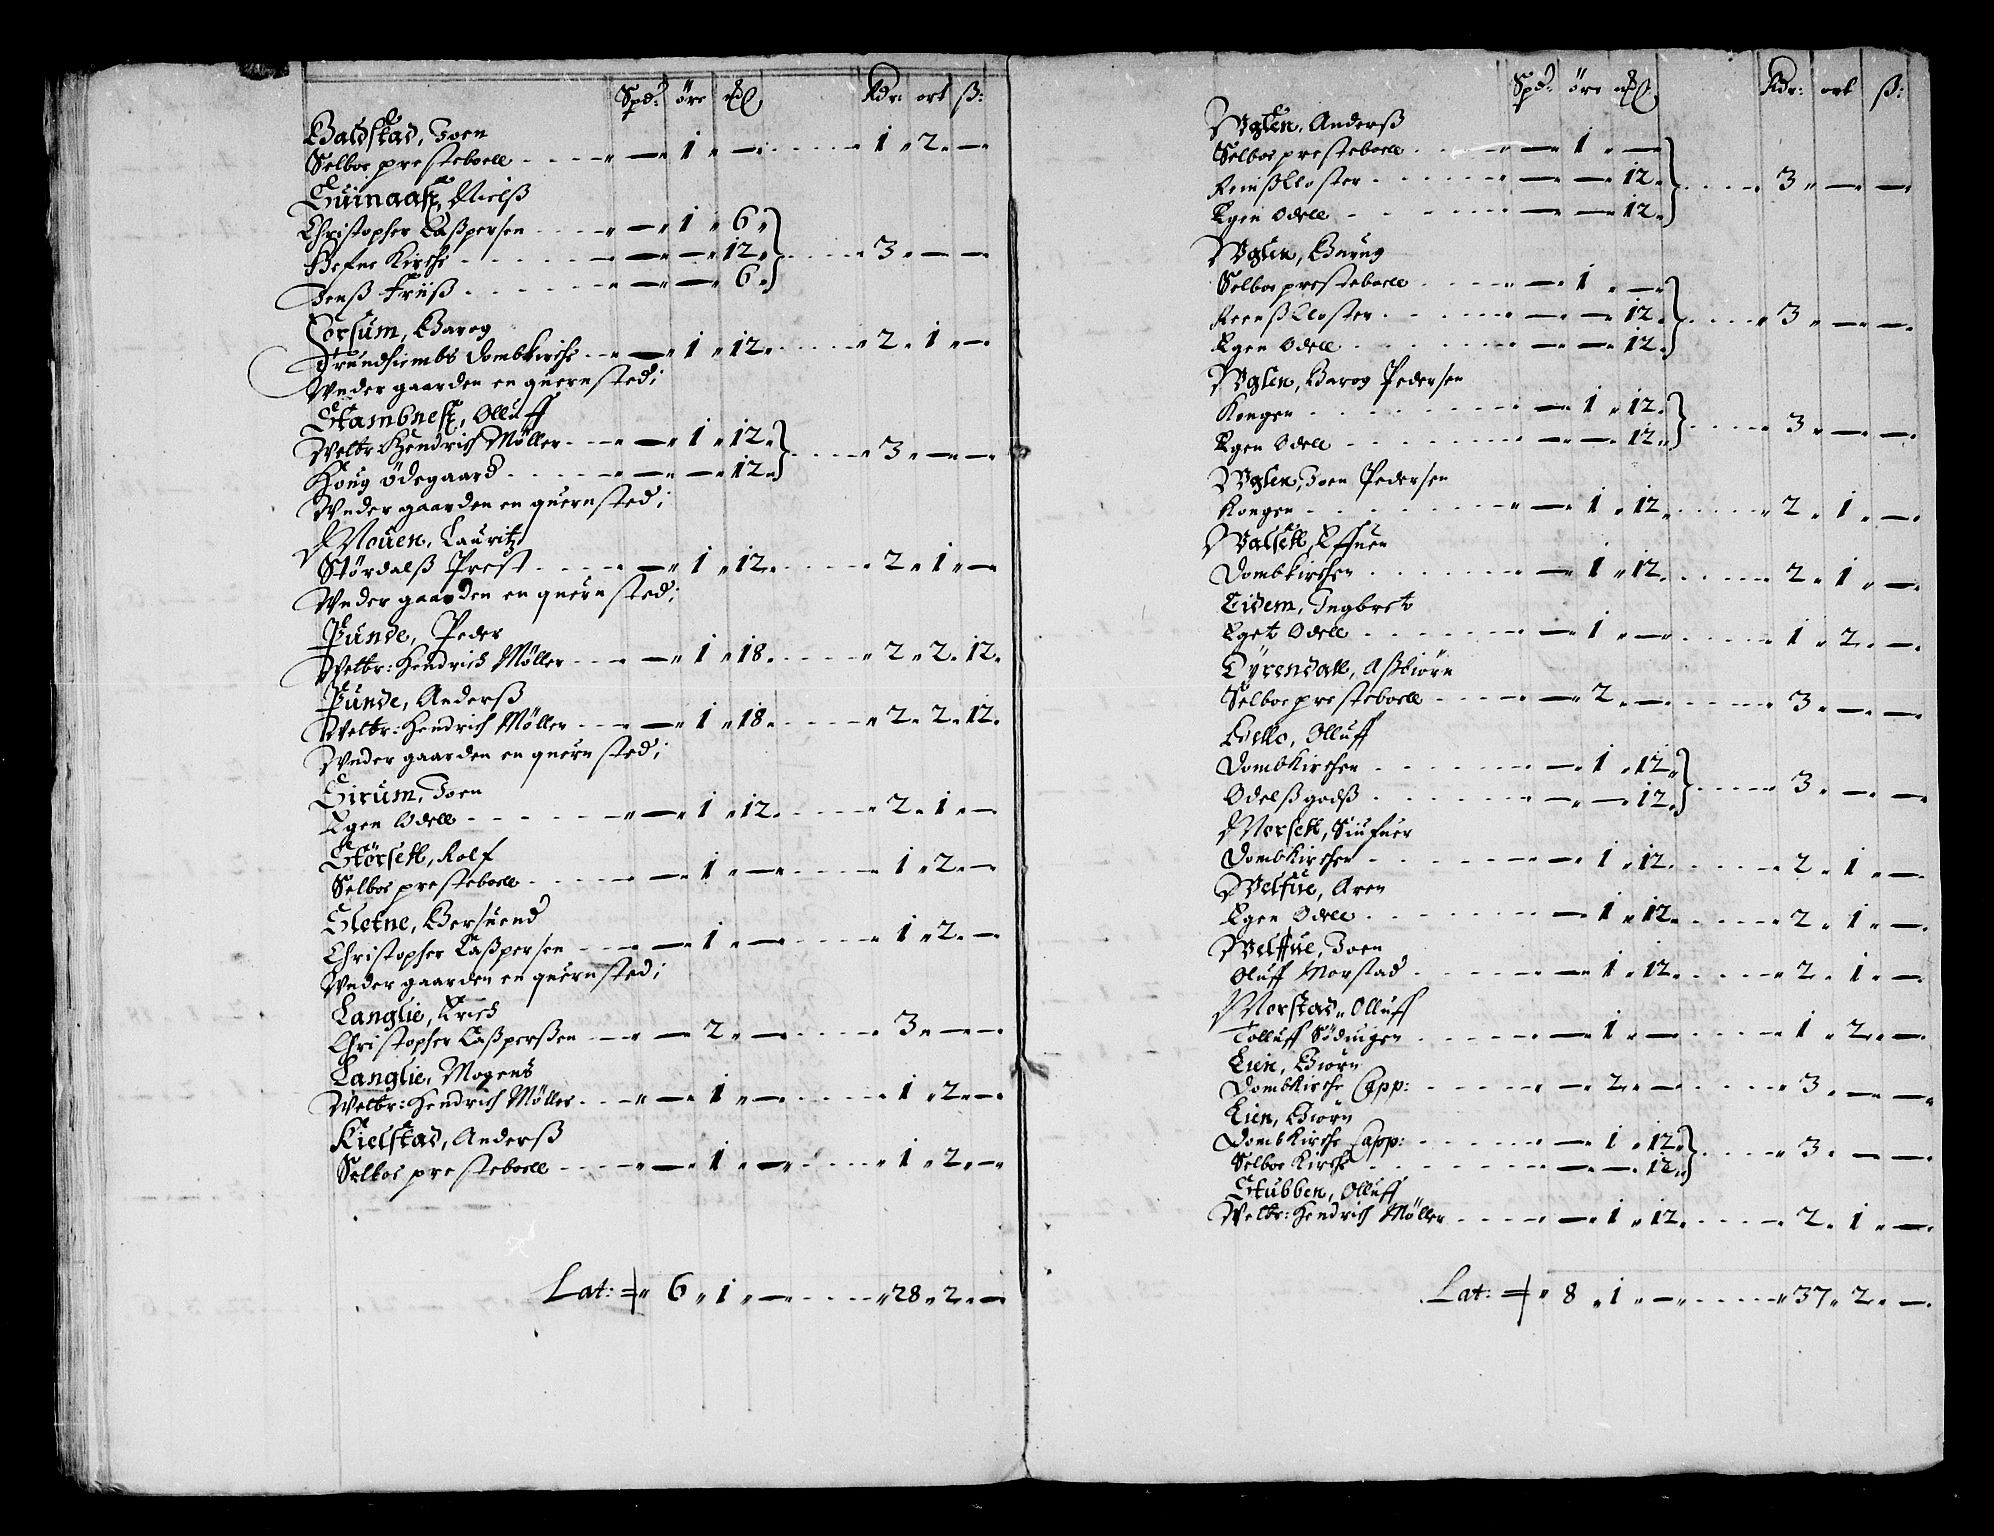 Spd: öre mkl: Rdr: ort ß:
Baldstad, Joen
Selboe presteboell . . . . „ — „ 1 „ — . . . . . 1 „ 2 „ —
Guinaaß, Nielß
Christopher Caßpersen . . . „ — „ 1 „ 6 „
Hefne Kirche . . . . . „ — „ — „ 12 „ } . . . . . 3 „ — „ —
Jenß Friiß . . . . . „ — „ — „ 6 „
Morsum, Barog
Trundhiembs Dombkirche . . „ — „ 1 „ 12 . . . . „ 2 „ 1 „ —
Vnder gaarden en quernsted;
Stambneß, Olluff
Velbr: Hendrich Møller . . . „ — „ 1 „ 12 „
Houg ödegaard . . . . . „ — „ — „ 12 „ } . . . . „ 3 „ — „ —
Vnder gaarden en quernsted;
Mouen, Lauritz
Størdalß Prest . . . . „ — „ 1 „ 12 . . . . . „ 2 „ 1 „ —
Vnder gaarden en quernsted;
Punde, Peder
Velbr: Hendrich Møller . . . „ — „ 1 „ 18 . . . . . „ 2 „ 2 „ 12
Punde, Anderß
Velbr: Hendrich Møller . . . — „ 1 „ 18 . . . . . „ 2 „ 2 „ 12
Vnder gaarden en quernsted;
Sirum, Joen
Egen Odell . . . . . . „ — „ 1 „ 12 . . . . . „ 2 „ 1 „ —
Størsett, Rolf
Selboe prestebolle . . . . . „ — „ 1 „ — . . . . . 1 „ 2 „ —
Sletne, Bersuend
Christopher Caßpersen . . . „ — „ 1 „ — . . . . . „ 1 „ 2 „ —
Vnder gaarden en quernsted;
Langlie, Erich
Christopher Caßperßen . . . „ — „ 2 „ — . . . . . 3 „ — „ —
Langlie, Mogens
Velbr: Hendrich Møller . . . „ — „ 1 „ — . . . . . 1 „ 2 „ —
Kielstad, Anderß
Selboe prestebolle . . . . „ — „ 1 „ — „ . . . . „ 1 „ 2 „ —
Lat: „ 6 „ 1 „ — . . . . . „ 28 „ 2 „ —
Spd: öre mkl: Rdr: ort ß:
Vglen, Anderß
Selboe prestebolle . . . . „ — „ 1 „ —
Reinß Closter . . . . . . „ — „ — „ 12 } . . . . . 3 „ — „ —
Egen Odell . . . . . . „ — „ — „ 12
Vglen, Barug
Selboe prestebolle . . . . „ — „ 1 „ —
Reenß Closter . . . . . „ — „ — „ 12 } . . . . . 3 „ — „ —
Egen Odell . . . . . . „ — „ — „ 12
Vglen, Barog Pedersen
Kongen . . . . . . . . „ — „ 1 „ 12
Egen Odell . . . . . . „ — „ — „ 12 } . . . . . 3 „ — „ —
Vglen, Joen Pedersen
Kongen . . . . . . . . „ — „ 1 „ 12 . . . . . 2 „ 1 „ —
Valsett, Effuen
Dombkirchen . . . . . . „ — „ 1 „ 12 . . . . . 2 „ 1 „ —
Eidem, Ingbret
Eget Odell . . . . . . „ — „ 1 „ — . . . . . 1 „ 2 „ —
Dyrendall, Aßbiörn
Selboe prestebolle . . . . „ — „ 2 „ — . . . . . 3 „ — „ —
Olluff
Dombkirchen . . . . . . „ — „ 1 „ 12
Odelßgodß . . . . . . „ — „ — „ 12 } . . . . . 3 „ — „ —
Morsett, Siufuer
Dombkirchen . . . . . . „ — „ 1 „ 12 . . . . . 2 „ 1 „ —
Velfue, Aren
Egen Odell . . . . . . „ — „ 1 „ 12 . . . . . 2 „ 1 „ —
Velffue, Joen
Oluff Morstad . . . . . „ — „ 1 „ 12 . . . . . 2 „ 1 „ —
Morstad, Olluff
Tolluff Södingen . . . . . „ — „ 1 „ — . . . . . 1 „ 2 „ —
Lien, Biörn
Dombkirche Capp: . . . . . „ — „ 2 „ — . . . . . 3 „ — „ —
Lien, Biörn
Dombkirche Capp: . . . . . „ — „ 1 „ 12
Selboe Kirche . . . . . „ — „ — „ 12 } . . . . . 3 „ — „ —
Stubben, Olluff
Velbr: Hendrich Møller . . . . „ — „ 1 „ 12 . . . . . 2 „ 1 „ —
Lat: „ 8 „ 1 „ — „ . . . . . „ 37 „ 2 „ —